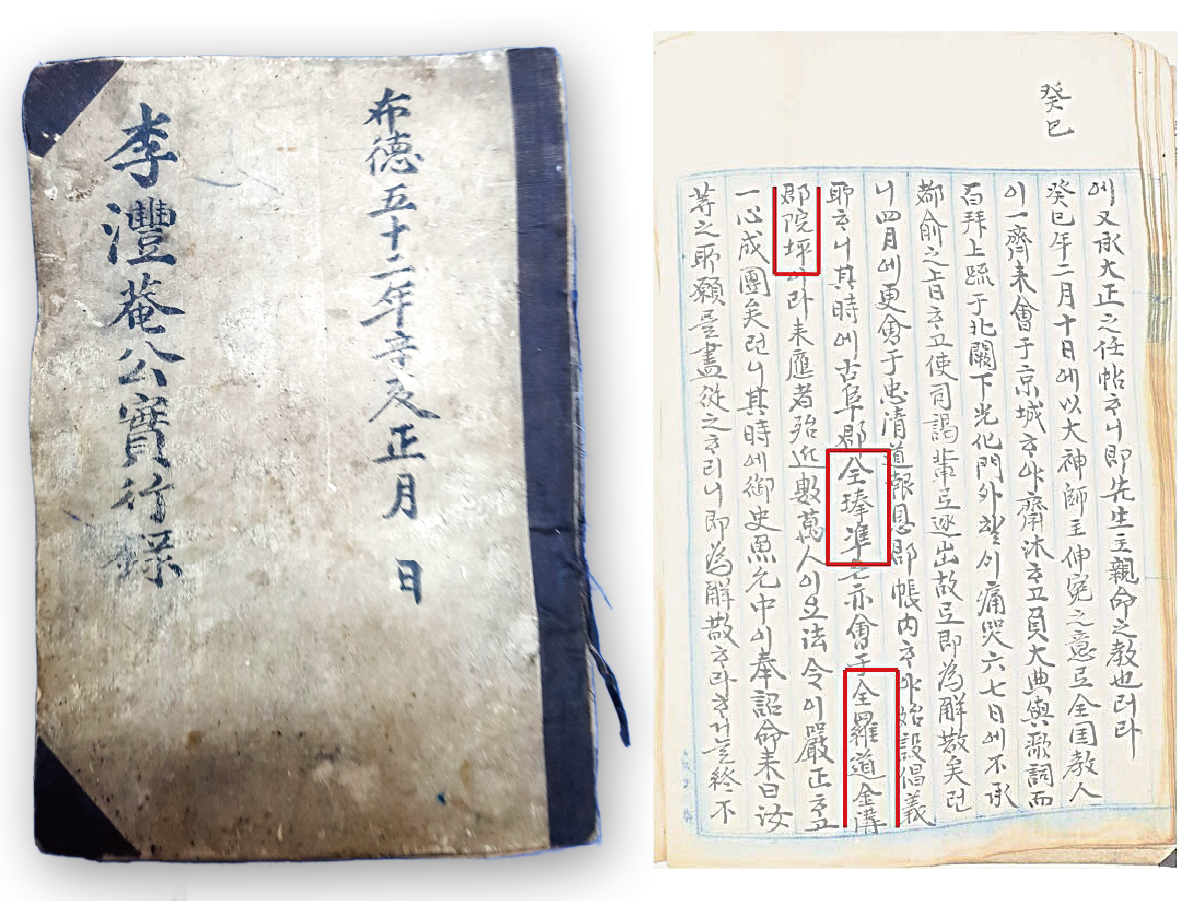 布德五十二年辛亥正月 日
李灃菴公實行錄
癸巳
에又承大正之任帖ᄒᆞ니即先生主親命之敎也러라
癸巳年二月十日에以大神師主伸寃之意로全国敎人
이一齊来會于京城ᄒᆞ야齋沐ᄒᆞ고員大典與歌詞而
百拜上疏于北闕下光化門外할ᄉᆡ痛哭六七日에不承
都俞之旨ᄒᆞ고使司謁輩로逐出故로即為解散矣러
니四月에更會于忠清道報恩郡帳內ᄒᆞ야始設倡義
所ᄒᆞ니其時에古阜郡全琫準은亦會于全羅道金溝
郡院坪이라来應者殆近數萬人이요法令이嚴正ᄒᆞ고
一心成團矣러니其時에御史魚允中이奉詔命来曰汝
等之所願을盡從之ᄒᆞ리니即為解散ᄒᆞ라ᄒᆞ거ᄂᆞᆯ終不